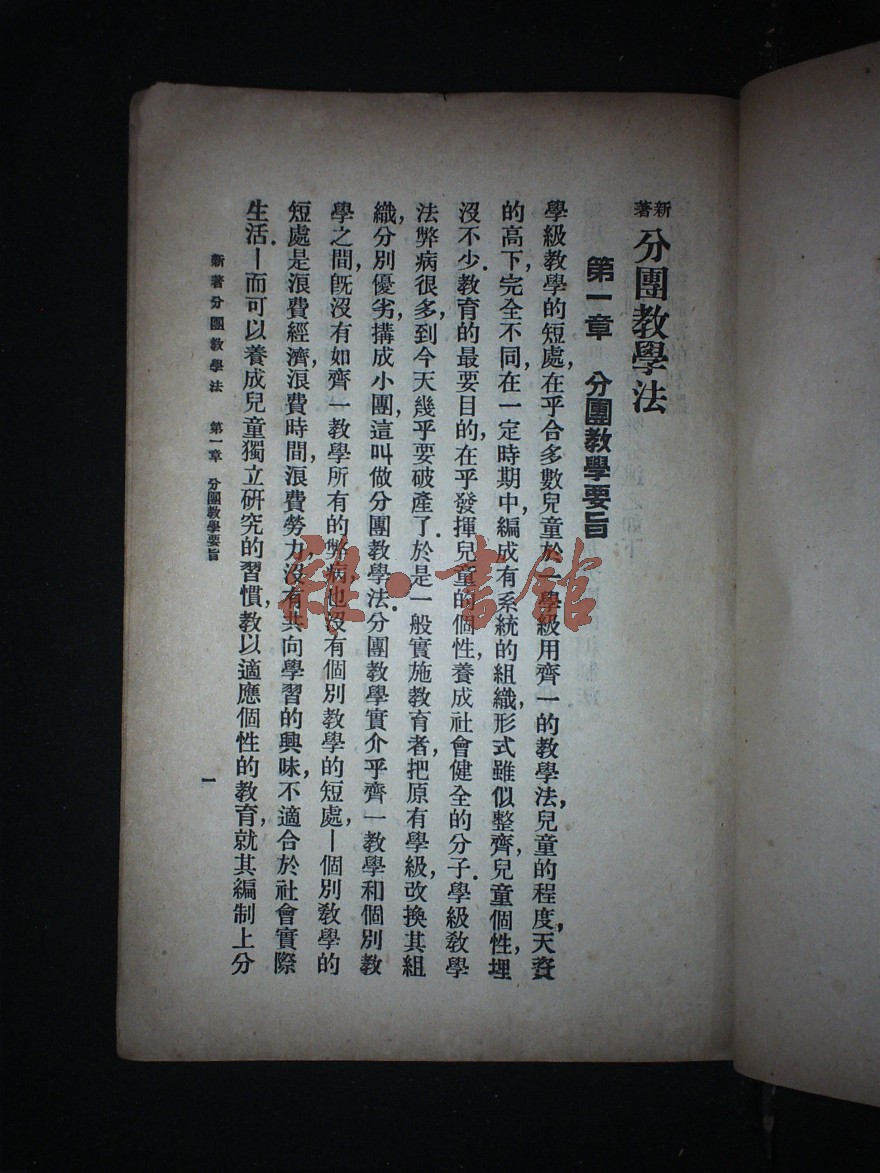 新著 分團教學法
第一章 分團教學要旨
學級教學的短處,在乎合多數兒童於一學級用齊一的教學法,兒童的程度,天資
的高下,完全不同,在一定時期中,編成有系統的組織,形式雖似整齊,兒童個性,埋
沒不少.教育的最要目的,在乎發揮兒童的個性,養成社會健全的分子.學級教學
法弊病很多,到今天幾乎要破產了.於是一般實施教育者,把原有學級,改換其組
織,分別優劣,搆成小團,這叫做分團教學法.分團教學實介乎齊一教學和個別教
學之間,旣沒有如齊一教學所有的弊病,也沒有個別教學的短處,—個別教學的
短處是浪費經濟,浪費時間,浪費勞力,沒有共向學習的興味,不適合於社會實際
生活—而可以養成兒童獨立研究的習慣,教以適應個性的教育,就其編制上分
新著分團教學法 第一章 分團教學要旨
一
雜·書館